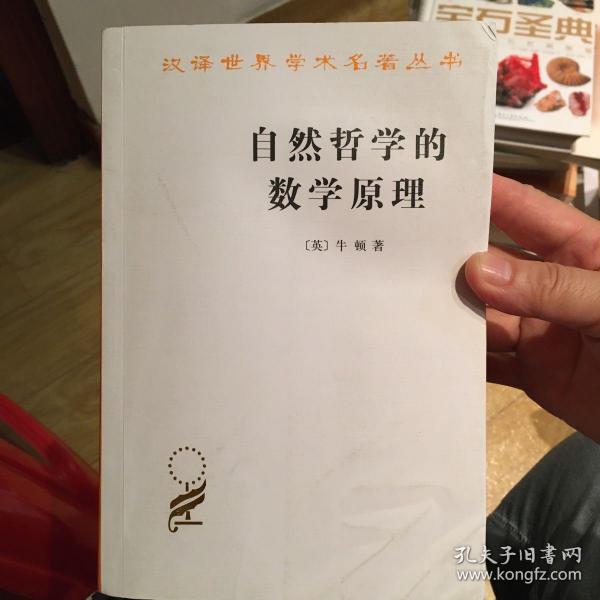 汉译世界学术名著丛书
自然哲学的
数学原理
〔英〕牛 顿 著
宝石圣典
孔夫子旧书网
www.kongfz.com